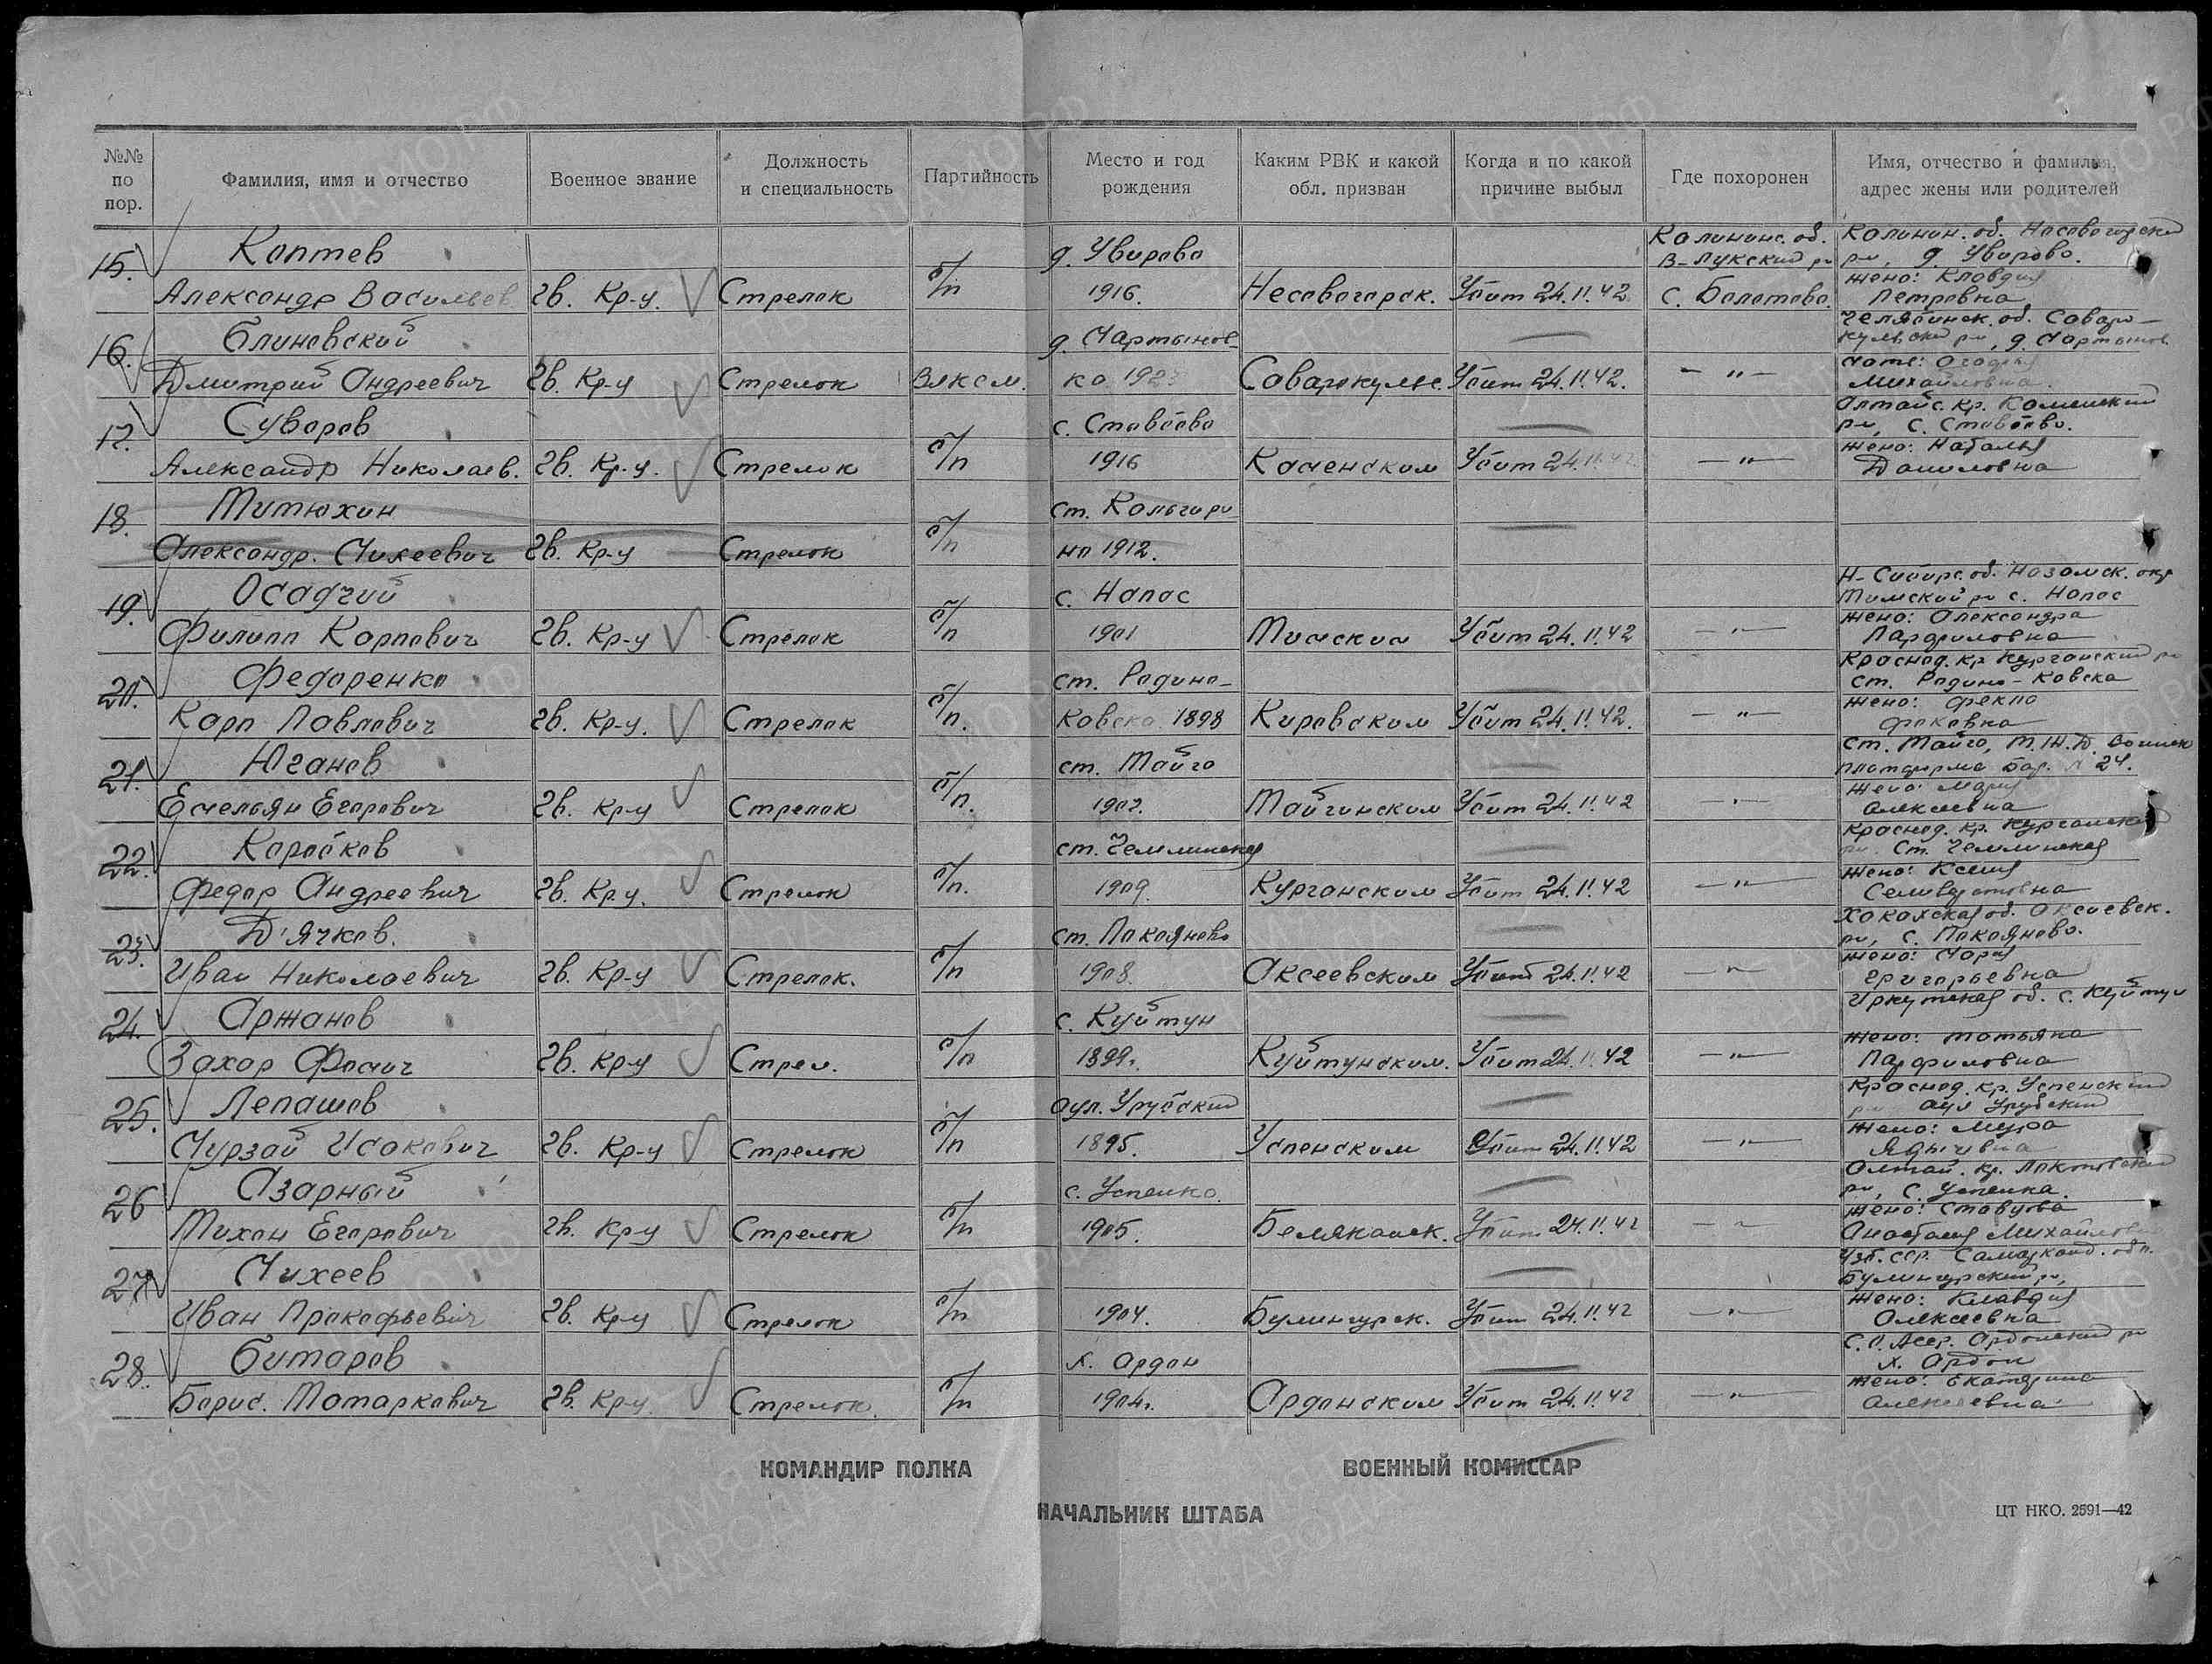 №№ по пор.
Фамилия, имя и отчество
Военное звание
Должность и специальность
Партийность
Место и год рождения
Каким РВК и какой обл. призван
Когда и по какой причине выбыл
Где похоронен
Имя, отчество и фамилия, адрес жены или родителей
15. Коптев Александр Васильев. гв. Кр-ц. Стрелок б/п д. Уварово 1916. Несовогорск. Убит 24.11.42 Калининс. об. В-Лукский р-н с. Болотово. Калинин. об. Несовогорский р-н, д. Уварово. жена: Клавдия Петровна
16. Блиновский Дмитрий Андреевич гв. Кр-ц Стрелок Влксм. д. Мартынов- ка 192 Убит 24.11.42. — " — Челябинск. об. р-н, д. Мартынов. Михайловна.
17. Суворов Александр Николаев. гв. Кр-ц. Стрелок б/п с. 1916 Каменским Убит 24.11.42 — " — Алтайс. кр. Каменский р-н, с. жена: Наталья Даниловна
18. Митюхин Александр. Михеевич гв. Кр-ц Стрелок б/п ст. на 1912.
19. Осадчий Филипп Карпович гв. Кр-ц Стрелок б/п с. Напас 1901 Убит 24.11.42 — " — Н-Сибирс. об. окр Тымский р-н с. Напас жена: Александра Парфиловна
20. Федоренко Карп Павлович гв. Кр-ц. Стрелок б/п. ст. Родни- ковска 1898 Кировским Убит 24.11.42. — " — Краснод. кр. Курганский р-н ст. Родни-ковска жена: Фекла
21. Юганов Емельян Егорович гв. Кр-ц Стрелок б/п. ст. Тайга 1902. Тайгинским Убит 24.11.42 — " — ст. Тайга, Т.Ж.Д. платформа Бар. № 24. жена: Мария Алексеевна
22. Коробков Федор Андреевич гв. Кр-ц. Стрелок б/п. ст. Чемлыкская 1909. Курганским Убит 24.11.42 — " — Краснод. кр. Курганский р-н. ст. Чемлыкская жена: Ксения
23. Д'ячков. Иван Николаевич гв. Кр-ц Стрелок. б/п ст. Покояново 1908. Аксеевским Убит 24.11.42 — " — об. р-н, с. Покояново. жена: Мария Григорьевна
24. Аржанов Захар Фомич гв. Кр-ц Стрел. б/п с. Куйтун 1899г. Куйтунским. Убит 24.11.42 — " — Иркутская об. с. Куйтун жена: Татьяна Парфиловна
25. Лепашов Мурзай Исакович гв. Кр-ц Стрелок б/п аул. Урубский 1895. Успенским Убит 24.11.42 — " — Краснод. кр. Успенский р-н аул Урубский жена: Мура
26 Азарный Тихон Егорович гв. Кр-ц Стрелок б/п с. Успенка. 1905. Убит 24.11.42 — " — Алтай. кр. Локтевский р-н, с. Успенка. жена: Анастасия Михайловна
27. Михеев Иван Прокофьевич гв. Кр-ц Стрелок б/п 1904. Булингурск. Убит 24.11.42 — " — Узб. сср. Самарканд. обл. Булингурский р-н, жена: Клавдия Алексеевна
28. Битаров Борис. Татаркович гв. Кр-ц. Стрелок. б/п х. Ардон 1904г. Ардонским Убит 24.11.42 — " — С.О. Асср. Ардонский р-н х. Ардон жена: Екатерина Алексеевна
КОМАНДИР ПОЛКА
ВОЕННЫЙ КОМИССАР
НАЧАЛЬНИК ШТАБА
ЦТ НКО. 2591—42
ПАМЯТЬ НАРОДА